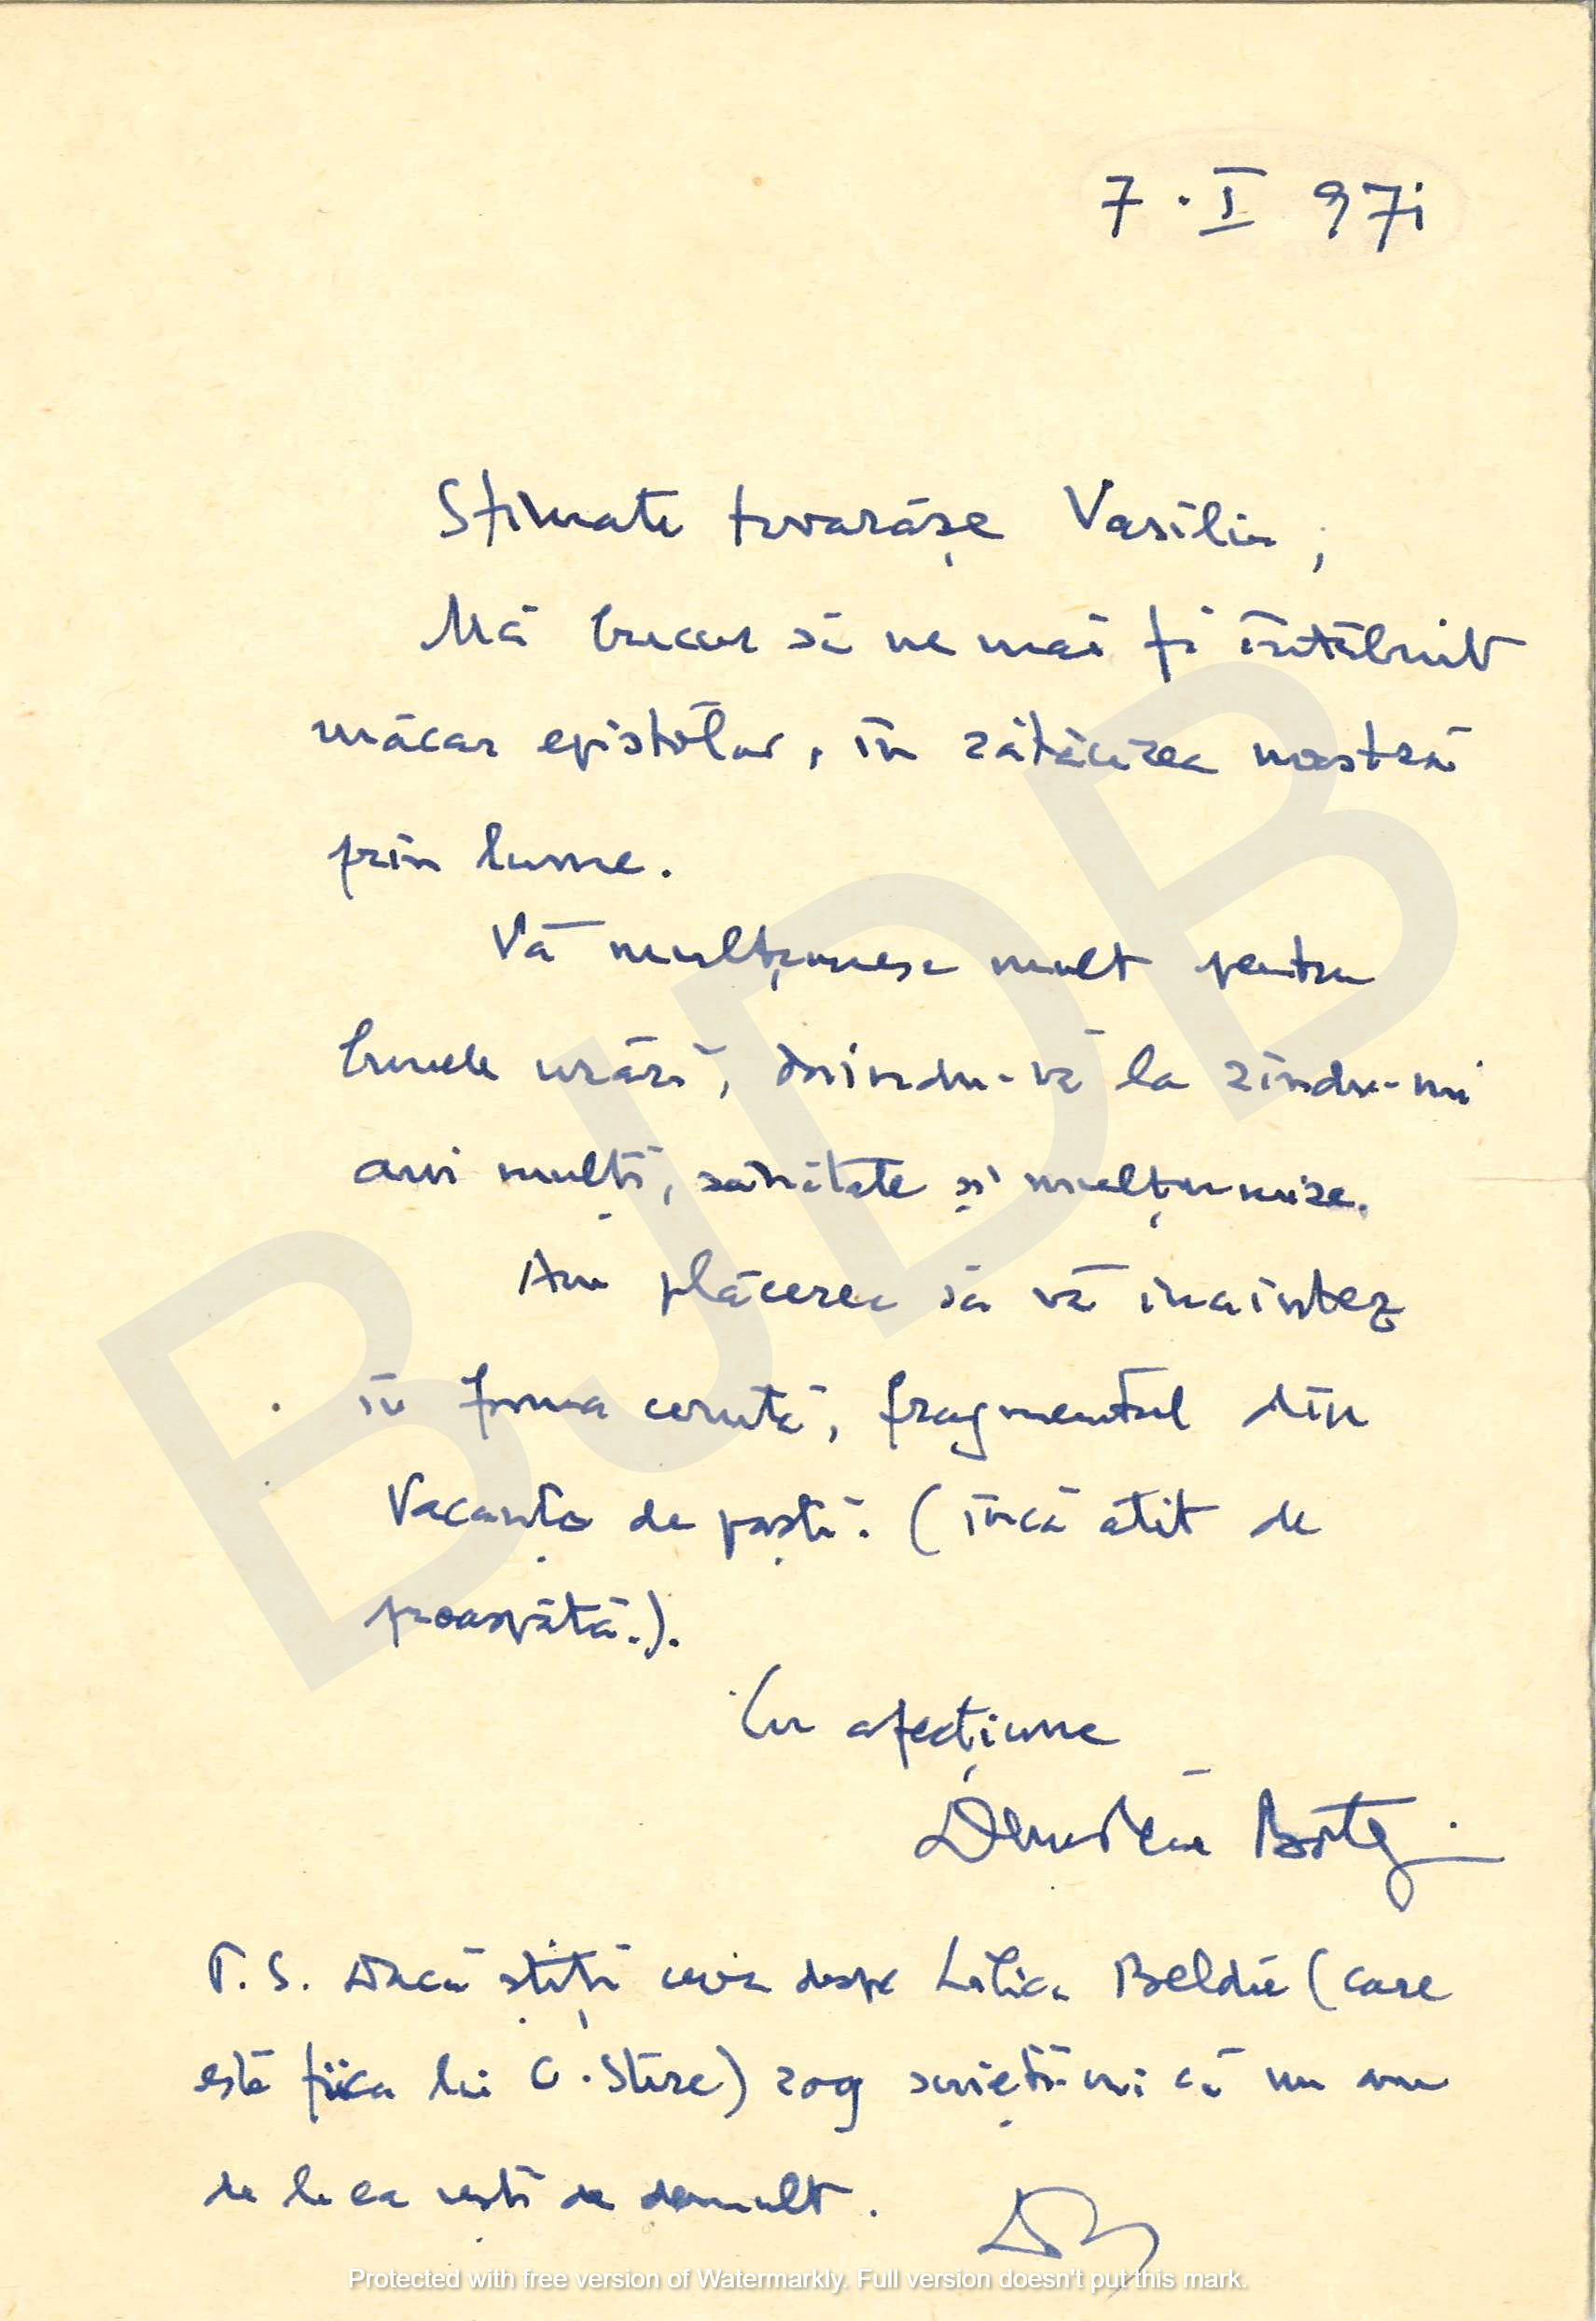 7 · I 971
Stimate tovarășe Vasiliu,
Mă bucur să ne mai fi întâlnit
măcar epistolar, în rătăcirea noastră
prin lume.
Vă mulțumesc mult pentru
bunele urări, dorindu-vă la rîndu-mi
ani mulți, sănătate și mulțumire.
Am plăcerea să vă inaintez
în forma cerută, fragmentul din
Vacanța de paști. (încă atît de
proaspătă.).
Cu afecțiune
Demostene Botez
P.S. Dacă știți ceva despre Lilica Beldie (care
este fiica lui C. Stere) rog scrieți-mi că nu am
de la ea vești de demult.
DB
BJDB
Protected with free version of Watermarkly. Full version doesn't put this mark.